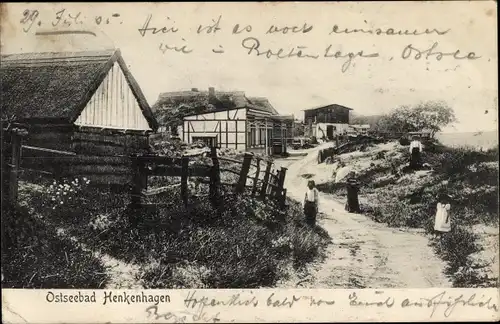 29. Juli 05. Hier ist es noch einsamer
wie in Boltenhagen, Ostsee
Ostseebad Henkenhagen
Hoffentlich bald von Euch ausführl.